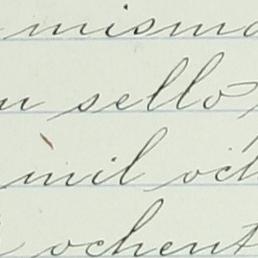 misma
sello
mil
ochent